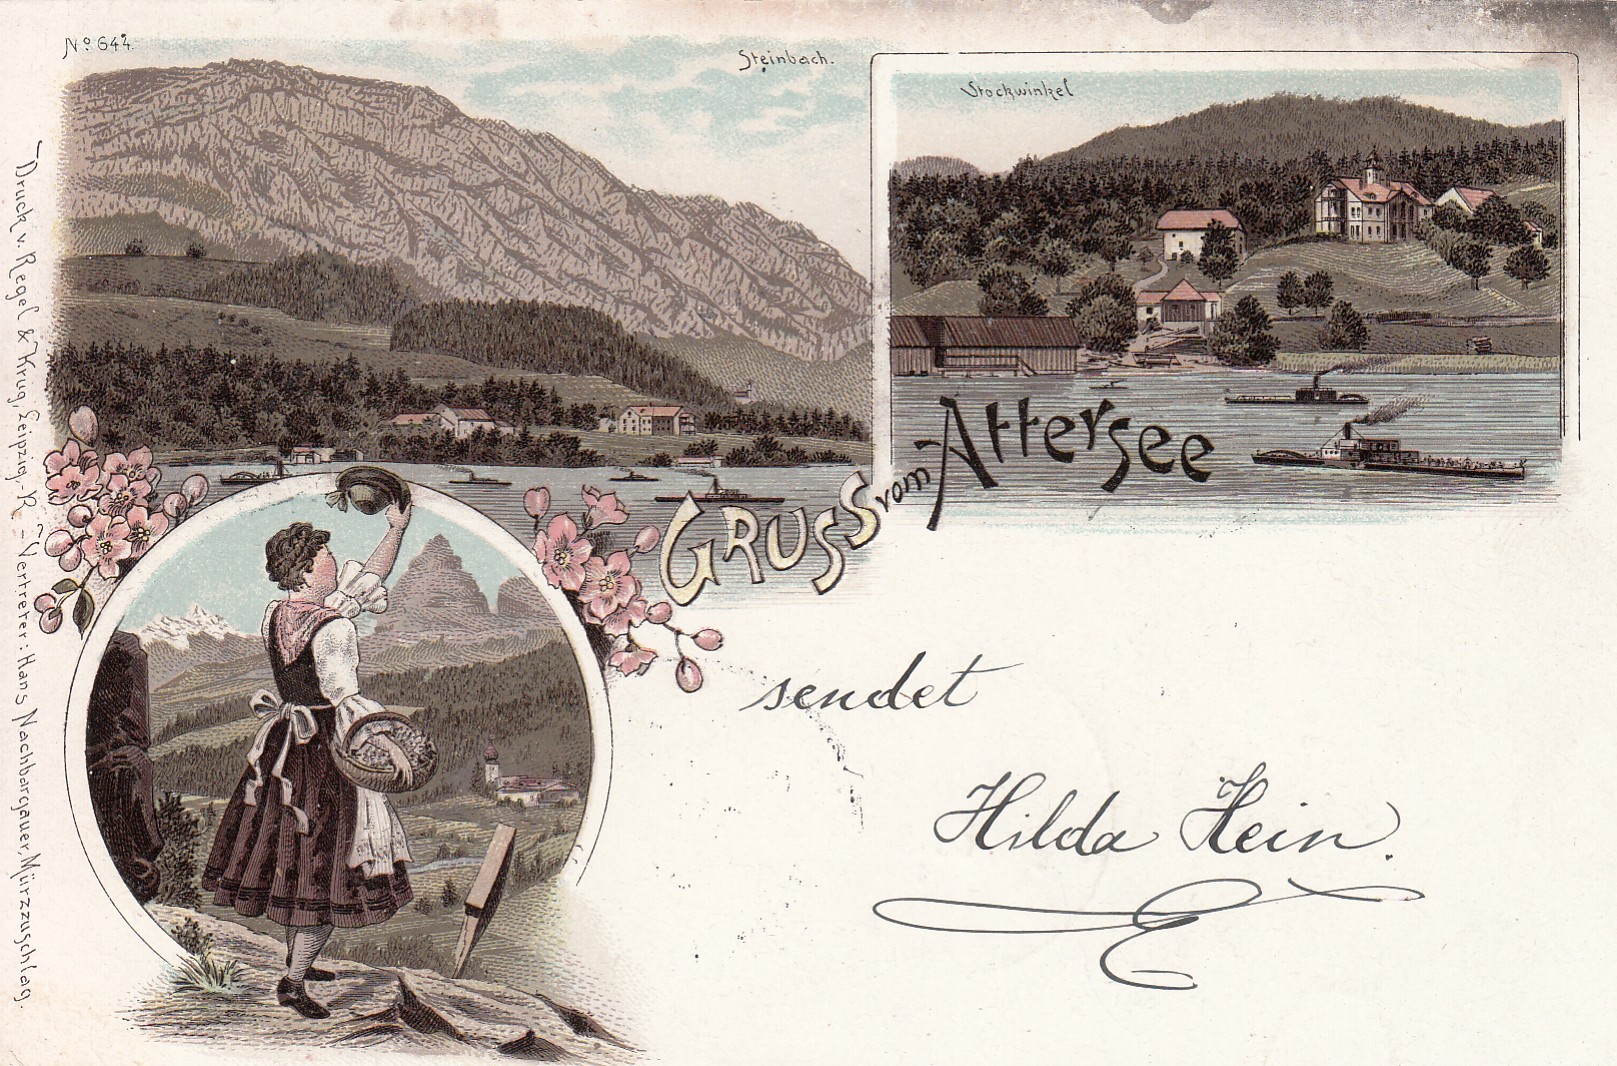 Nº 644.
Steinbach.
Stockwinkel
Gruss vom Attersee
sendet
Hilda Hein.
Druck v. Regel & Krug, Leipzig-R. – Vertreter: Hans Nachbargauer, Mürzzuschlag.